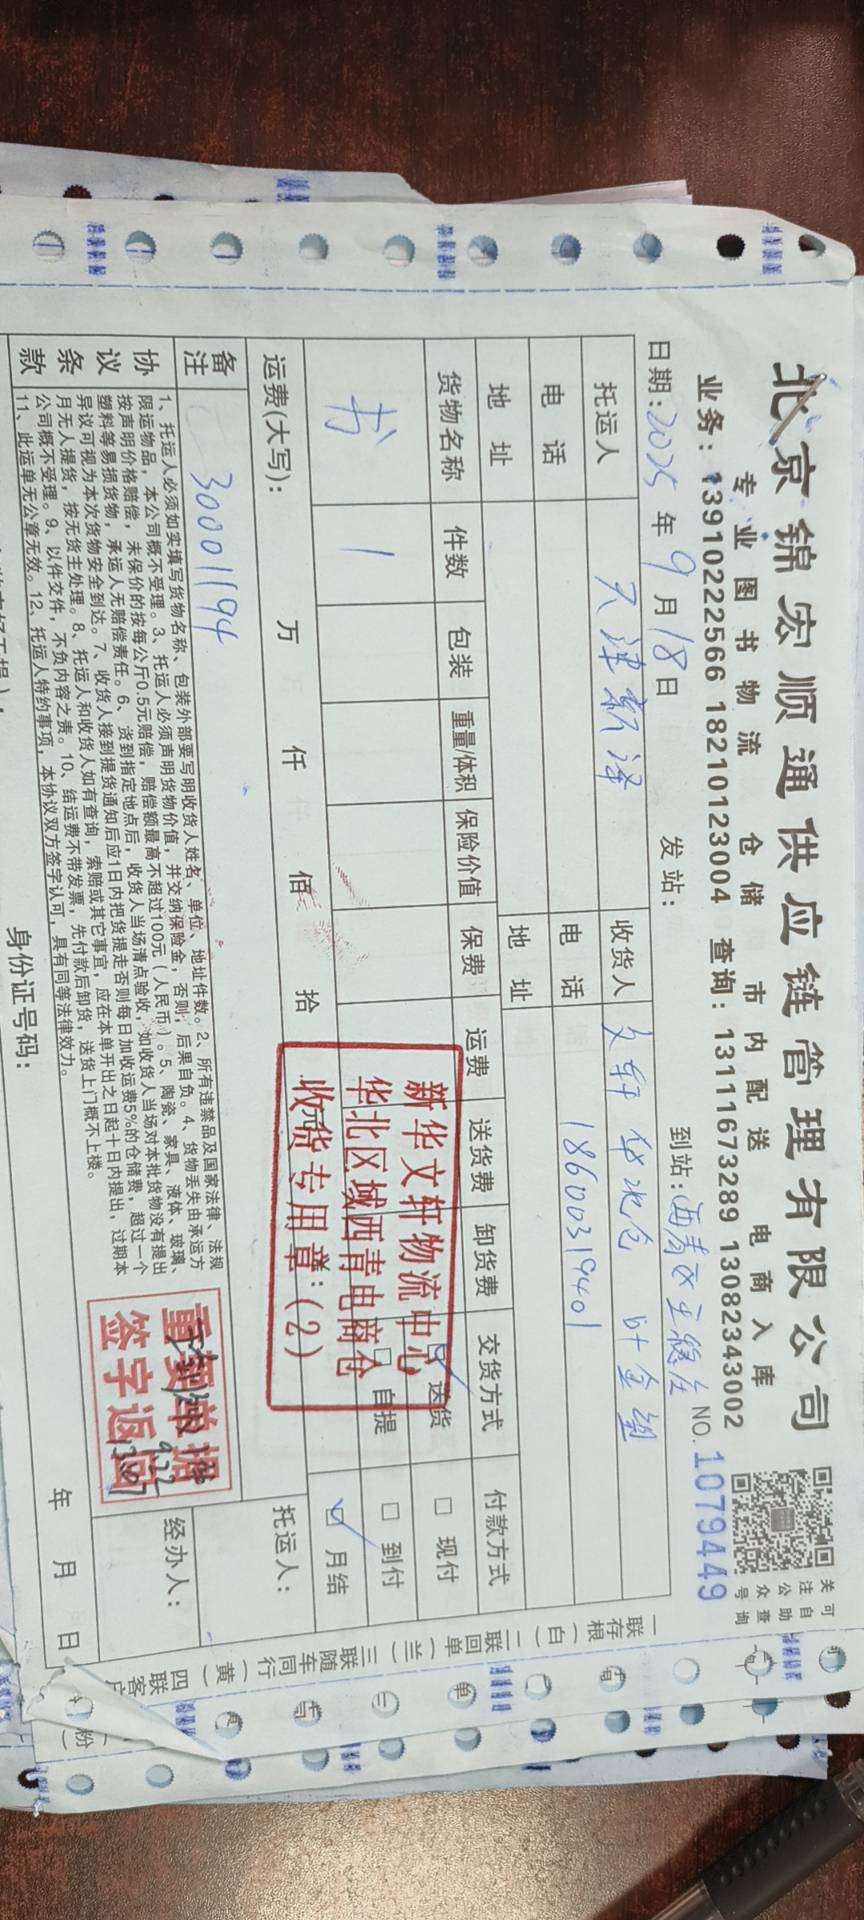 北京锦宏顺通供应链管理有限公司
专业图书物流 仓储 市内配送 电商入库
业务：13910222566 18210123004 查询：13111673289 13082343002
关注公众号
可自助查询
日期：2025年9月18日 发站： 到站：西青区王稳庄 NO. 1079449
托运人 天津新泽 收货人 文轩华北仓 叶金塑
电话 电话 18600319401
地址 地址
货物名称 件数 包装 重量/体积 保险价值 保费 运费 送货费 卸货费 交货方式 付款方式
书 1 送货 自提 现付 到付 月结
运费(大写)： 万 仟 佰 拾 元
新华文轩物流中心
华北区域西青电商仓
收货专用章：(2)
备注 30001194
重要单据
签字返回
9.22
托运人：
经办人：
协议条款
1、托运人必须如实填写货物名称、包装外部要写明收货人姓名、单位、地址件数。2、所有违禁品及国家法律、法规
限运物品，本公司概不受理。3、托运人必须声明货物价值，并交纳保险金，否则，后果自负。4、货物丢失由承运方
按声明价格赔偿，未保价的按每公斤0.5元赔偿，赔偿额最高不超过100元（人民币）。5、陶瓷、家具、液体、玻璃、
塑料等易损货物，承运人无赔偿责任。6、货到指定地点后，收货人当场清点验收，如收货人当场对本批货物没有提出
异议可视为本次货物安全到达。7、收货人接到提货通知后应1日内把货提走否则每日加收运费5%的仓储费，超过一个
月无人提货，按无货主处理。8、托运人和收货人如有查询，索赔或其它事宜，应在本单开出之日起十日内提出，过期本
公司概不受理。9、以件交件，不负内容之责。10、结运费不带发票，先付款后卸货，送货上门概不上楼。
11、此运单无公章无效。12、托运人特约事项，本协议双方签字认可，具有同等法律效力。
身份证号码： 年 月 日
一联存根(白) 二联回单(兰) 三联随车同行(黄) 四联客户(粉)